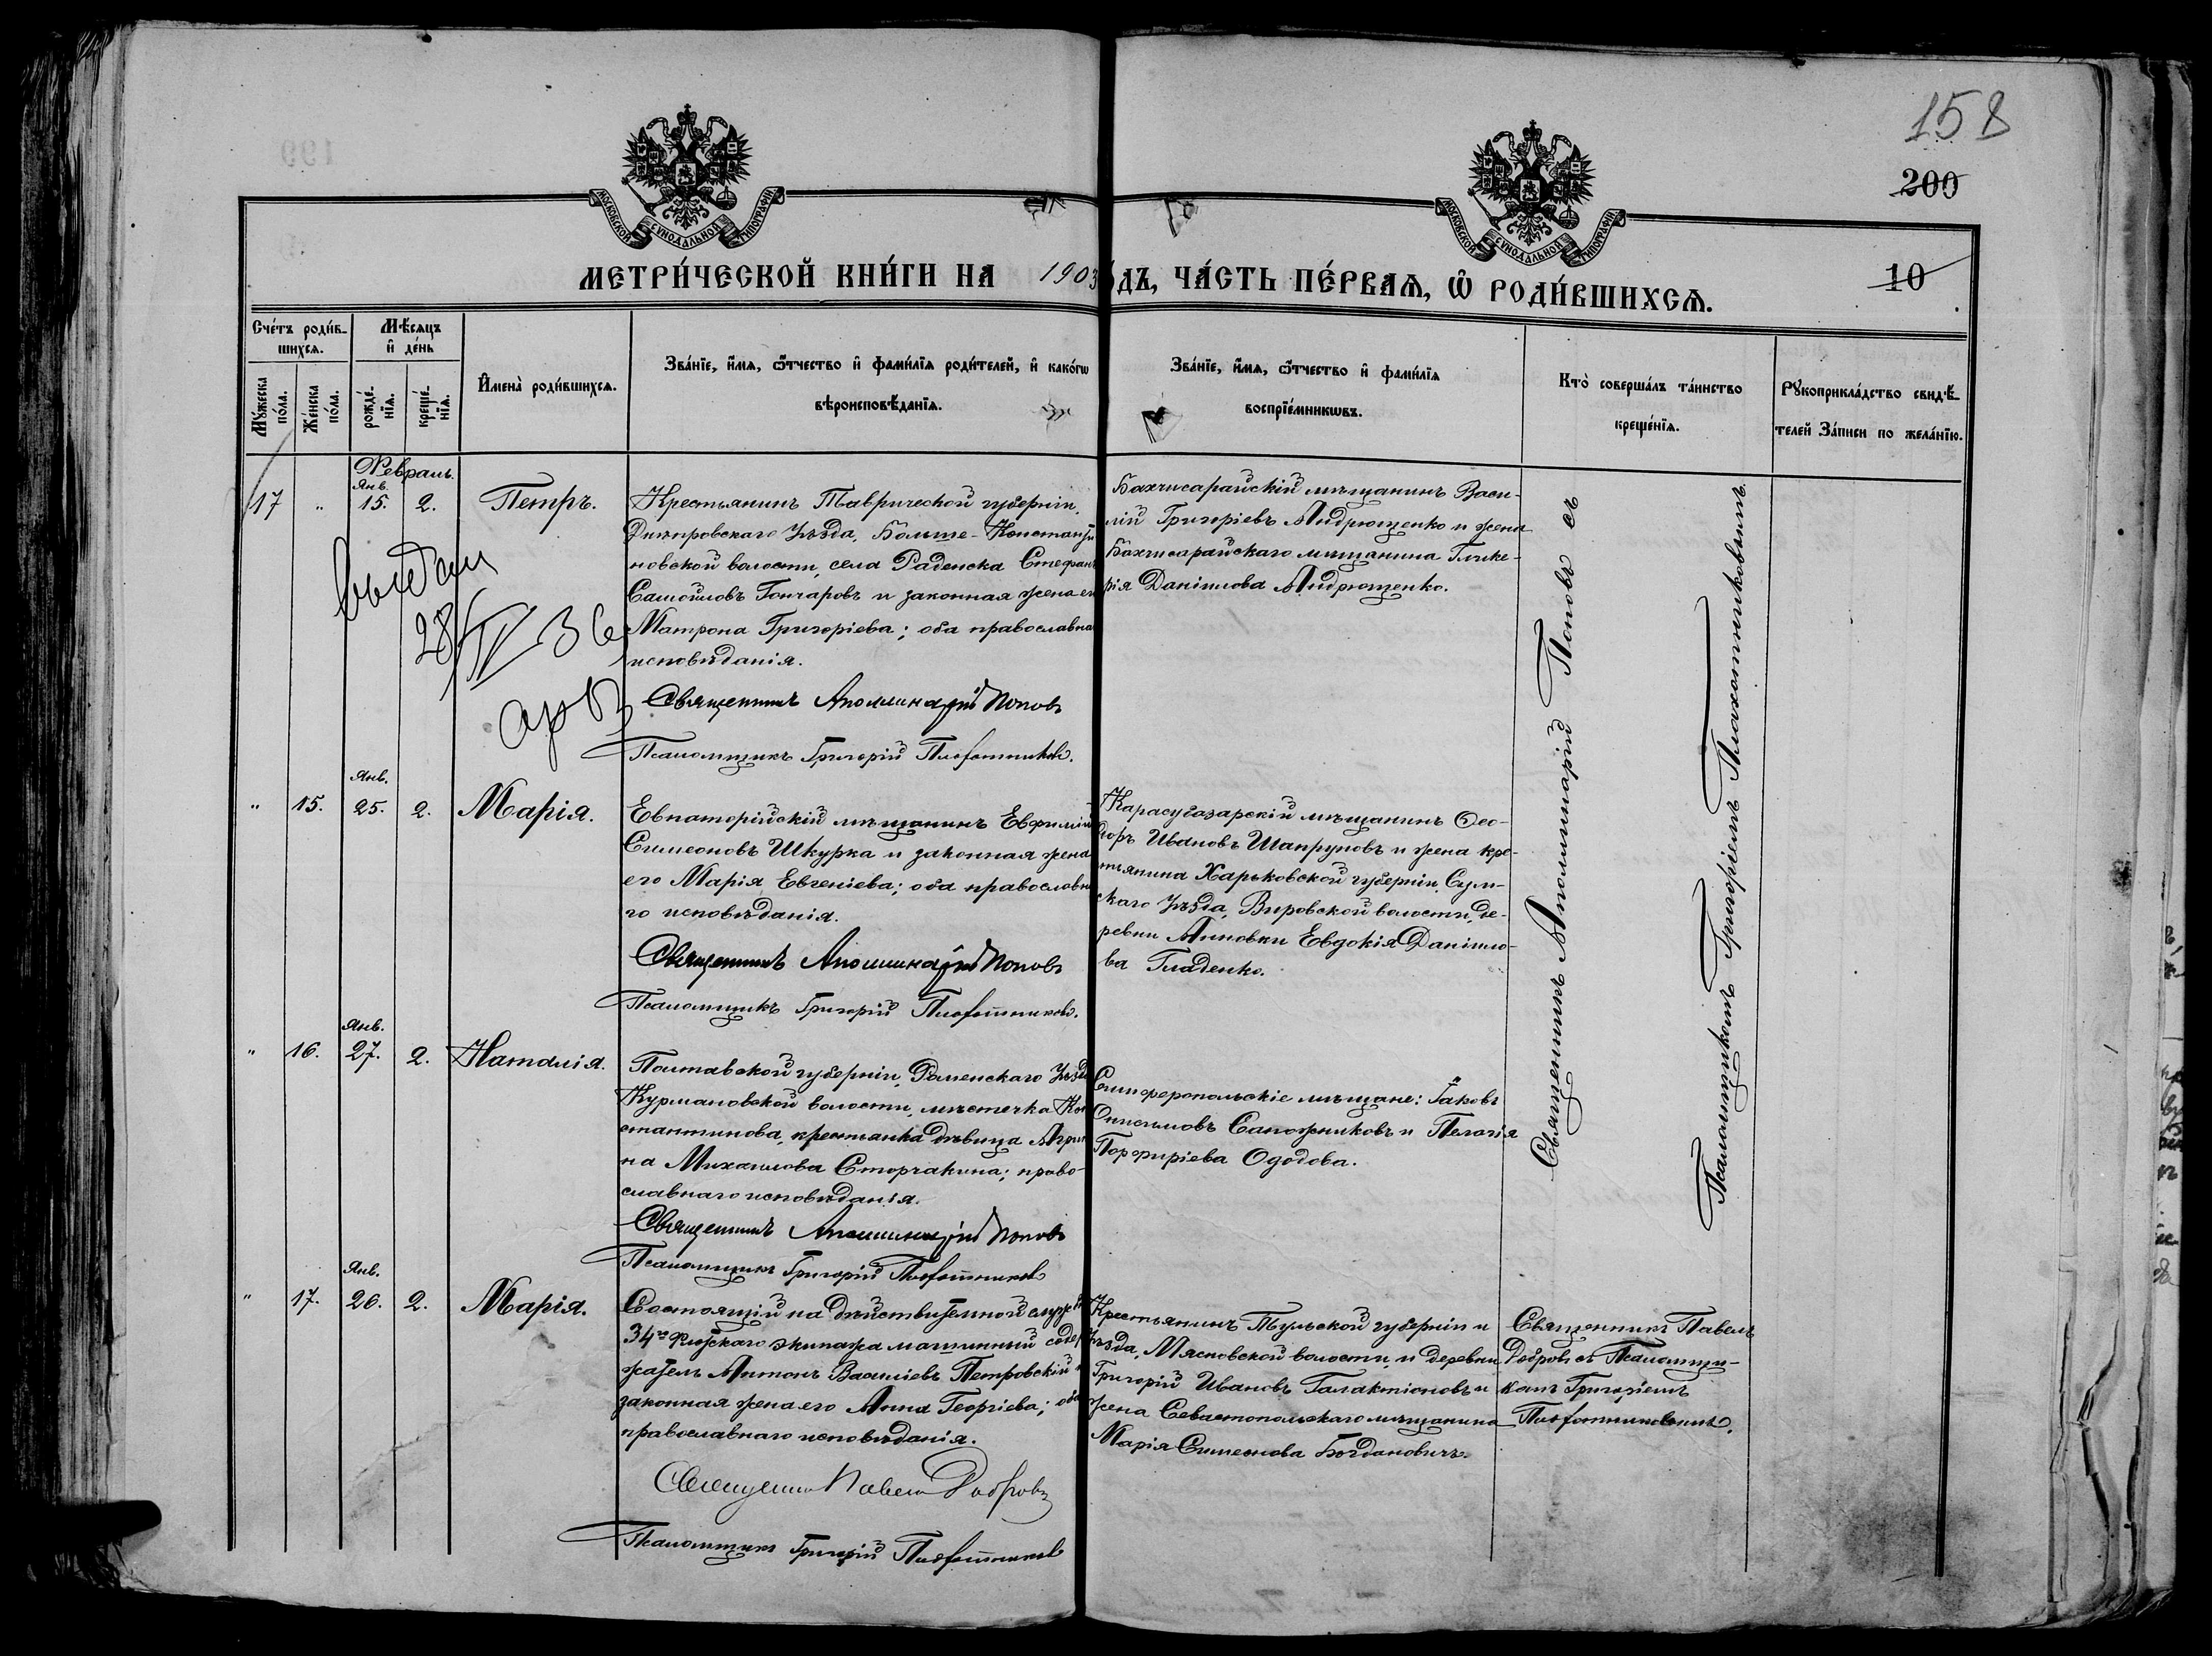 158
200
МОСКОВСКОЙ СУНОДАЛЬНОЙ ТИПОГРАФІИ
МОСКОВСКОЙ СУНОДАЛЬНОЙ ТИПОГРАФІИ
МЕТРИ́ЧЕСКОЙ КНИ́ГИ НА 1903
ОДЪ, ЧА́СТЬ ПЕ́РВАѦ, Ѡ҆ РОДИ́ВШИХСѦ.
10
Сче́тъ роди́в-
шихсѧ.
Мꙋ́жеска по́ла.
Же́нска по́ла.
Мѣ́сѧцъ
и҆ де́нь
рожде́-
нїѧ.
креще́-
нїѧ.
И҆мена̀ роди́вшихсѧ.
Зва́нїе, и҆́мѧ, ѻ҆́тчество и҆ фами́лїѧ роди́телей, и҆ како́гѡ
вѣроисповѣ́данїѧ.
Зва́нїе, и҆́мѧ, ѻ҆́тчество и҆ фами́лїѧ
воспрїе́мникѡвъ.
Кто̀ соверша́лъ та́инство
креще́нїѧ.
Рꙋкоприкла́дство свидѣ́-
телей за́писи по жела́нїю.
Февраль.
Янв.
17 „ 15. 2. Петръ.
Крестьянинъ Таврической губерніи,
Днѣпровскаго Уѣзда, Больше-Константи
новской волости, села Раденска Стефанъ
Самойловъ Гончаровъ и законная жена ег
Матрона Григоріева; оба православна
исповѣданія.
Священникъ Аполлинарій Поповъ
Псаломщикъ Григорій Плахотниковъ.
Бахчисарайскій мѣщанинъ Васи-
лій Григоріевъ Андрющенко и жена
Бахчисарайскаго мѣщанина Глике-
рія Даніилова Андрющенко.
Священникъ Аполлинарій Поповъ съ
Псаломщикомъ Григоріемъ Плахотниковымъ.
выдан
28/IV 36
Янв.
„ 15. 25. 2. Марія.
Евпаторійскій мѣщанинъ Евфимій
Симеоновъ Шкурка и законная жена
его Марія Евгеніева; оба православна
го исповѣданія.
Священникъ Аполлинарій Поповъ
Псаломщикъ Григорій Плахотниковъ.
Карасубазарскій мѣщанинъ Ѳео-
доръ Ивановъ Шапруновъ и жена кре-
стьянина Харьковской губерніи, Сум-
скаго Уѣзда, Вировской волости, де-
ревни Анновки Евдокія Даніило-
ва Гладенко.
Янв.
„ 16. 27. 2. Наталія.
Полтавской губерніи, Роменскаго Уѣзда
Курмановской волости, мѣстечка Кон
стантинова, крестьянка дѣвица Агрип
на Михаилова Сторчакина; право-
славнаго исповѣданія.
Священникъ Аполлинарій Поповъ
Псаломщикъ Григорій Плахотниковъ
Симферопольскіе мѣщане: Іаковъ
Онисимовъ Сапожниковъ и Пелагія
Порфиріева Ододова.
Янв.
„ 17. 26. 2. Марія.
Состоящій на дѣйствительной служб
34го флотскаго экипажа машинный содер
жатель Антонъ Василіевъ Петровскій и
законная жена его Анна Георгіева; оба
православнаго исповѣданія.
Священникъ Павелъ Добровъ
Псаломщикъ Григорій Плахотниковъ
Крестьянинъ Тульской губерніи и
уѣзда, Мясновской волости, и деревни
Григорій Ивановъ Галактіоновъ и
жена Севастопольскаго мѣщанина
Марія Симеонова Богдановичъ.
Священникъ Павелъ
Добровъ съ Псаломщи-
комъ Григоріемъ
Плахотниковымъ.